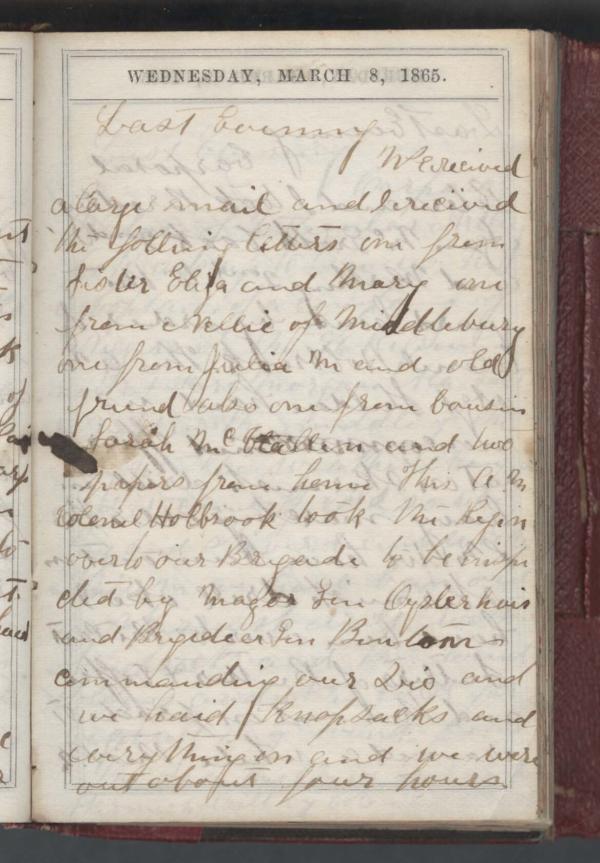 WEDNESDAY, MARCH 8, 1865.
Last Evening
We recieved
a large mail and I recieved
the folling letters one from
Sister Eliza and Mary one
from Nellie of Middlebury
one from Julia M and old
friend also one from Cousin
Sarah Mc and two
papers from home This A M
Colonel Holbrook took the Regin
over to our Brigade to be inspe
cted by Magor Gen
and Brigedeer Gen
commanding our Div and
we haid Knapsacks and
everything on and we were
out about four hours